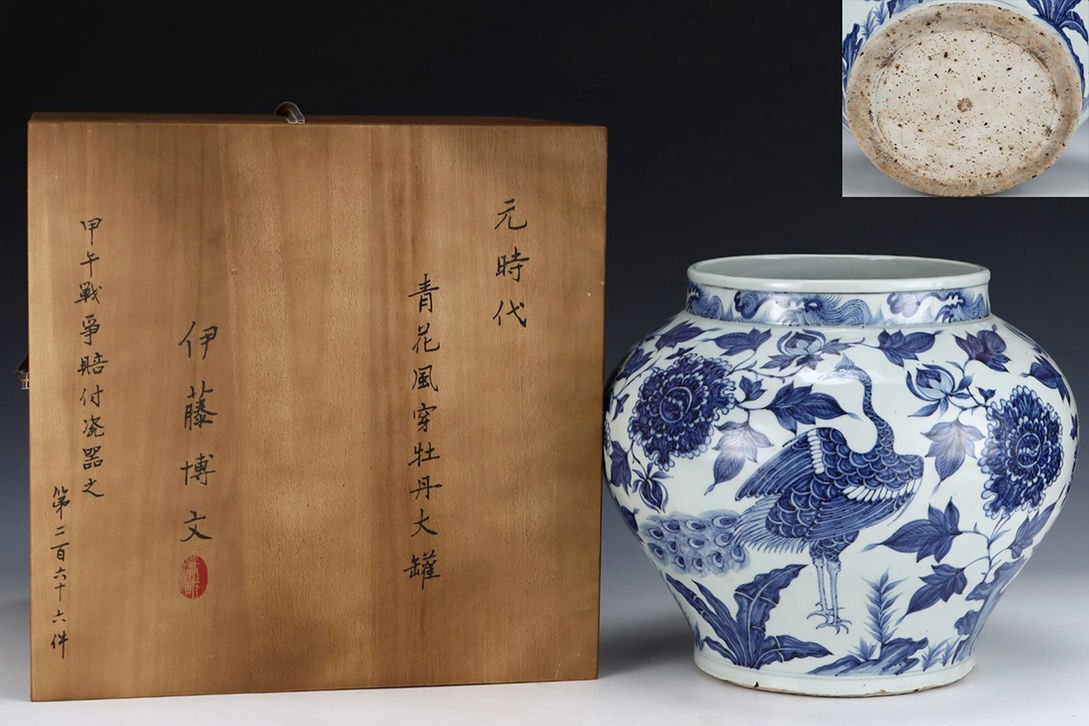 元時代
青花風穿牡丹大罐
伊藤博文
甲午戰爭賠付瓷器之
第二百六十六件